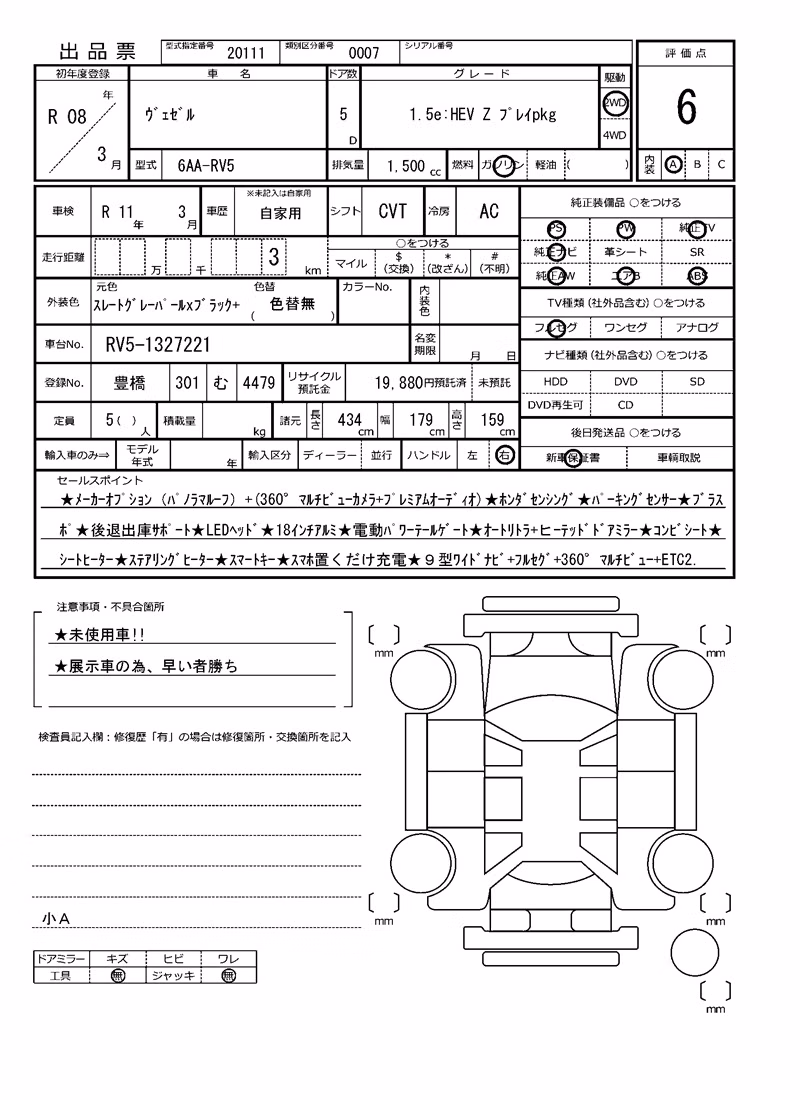 出品票 型式指定番号 20111 類別区分番号 0007 シリアル番号
評価点
6
初年度登録 車名 ドア数 グレード 駆動
R 08 年 3 月
ヴェゼル
5 D
1.5e:HEV Z プレイpkg
2WD
4WD
型式 6AA-RV5 排気量 1,500 cc 燃料 ガソリン 軽油 ( )
内装 A B C
車検 R 11 年 3 月 車歴 ※未記入は自家用 自家用 シフト CVT 冷房 AC
純正装備品 ○をつける
PS PW 純正TV
純正ナビ 革シート SR
純正AW エアB ABS
走行距離 万 千 3 km
○をつける
マイル $(交換) *(改ざん) #(不明)
外装色 元色 スレートグレーパールxブラック+ 色替 ( 色替無 ) カラーNo. 内装色
TV種類(社外品含む)○をつける
フルセグ ワンセグ アナログ
車台No. RV5-1327221 名変期限 月 日
ナビ種類(社外品含む)○をつける
HDD DVD SD
DVD再生可 CD
登録No. 豊橋 301 む 4479 リサイクル預託金 19,880円預託済 未預託
定員 5( )人 積載量 kg 諸元 長さ 434 cm 幅 179 cm 高さ 159 cm
後日発送品 ○をつける
新車保証書 車輌取説
輸入車のみ⇒ モデル年式 年 輸入区分 ディーラー 並行 ハンドル 左 右
セールスポイント
★メーカーオプション (パノラマルーフ) +(360° マルチビューカメラ+プレミアムオーディオ)★ホンダセンシング★パーキングセンサー★プラス
ポ★後退出庫サポート★LEDヘッド★18インチアルミ★電動パワーテールゲート★オートリトラ+ヒーテッドドアミラー★コンビシート★
シートヒーター★ステアリングヒーター★スマートキー★スマホ置くだけ充電★９型ワイドナビ+フルセグ+360° マルチビュー+ETC2.
注意事項・不具合箇所
★未使用車!!
★展示車の為、早い者勝ち
検査員記入欄:修復歴「有」の場合は修復箇所・交換箇所を記入
小A
ドアミラー キズ ヒビ ワレ
工具 無 ジャッキ 無
mm
mm
mm
mm
mm